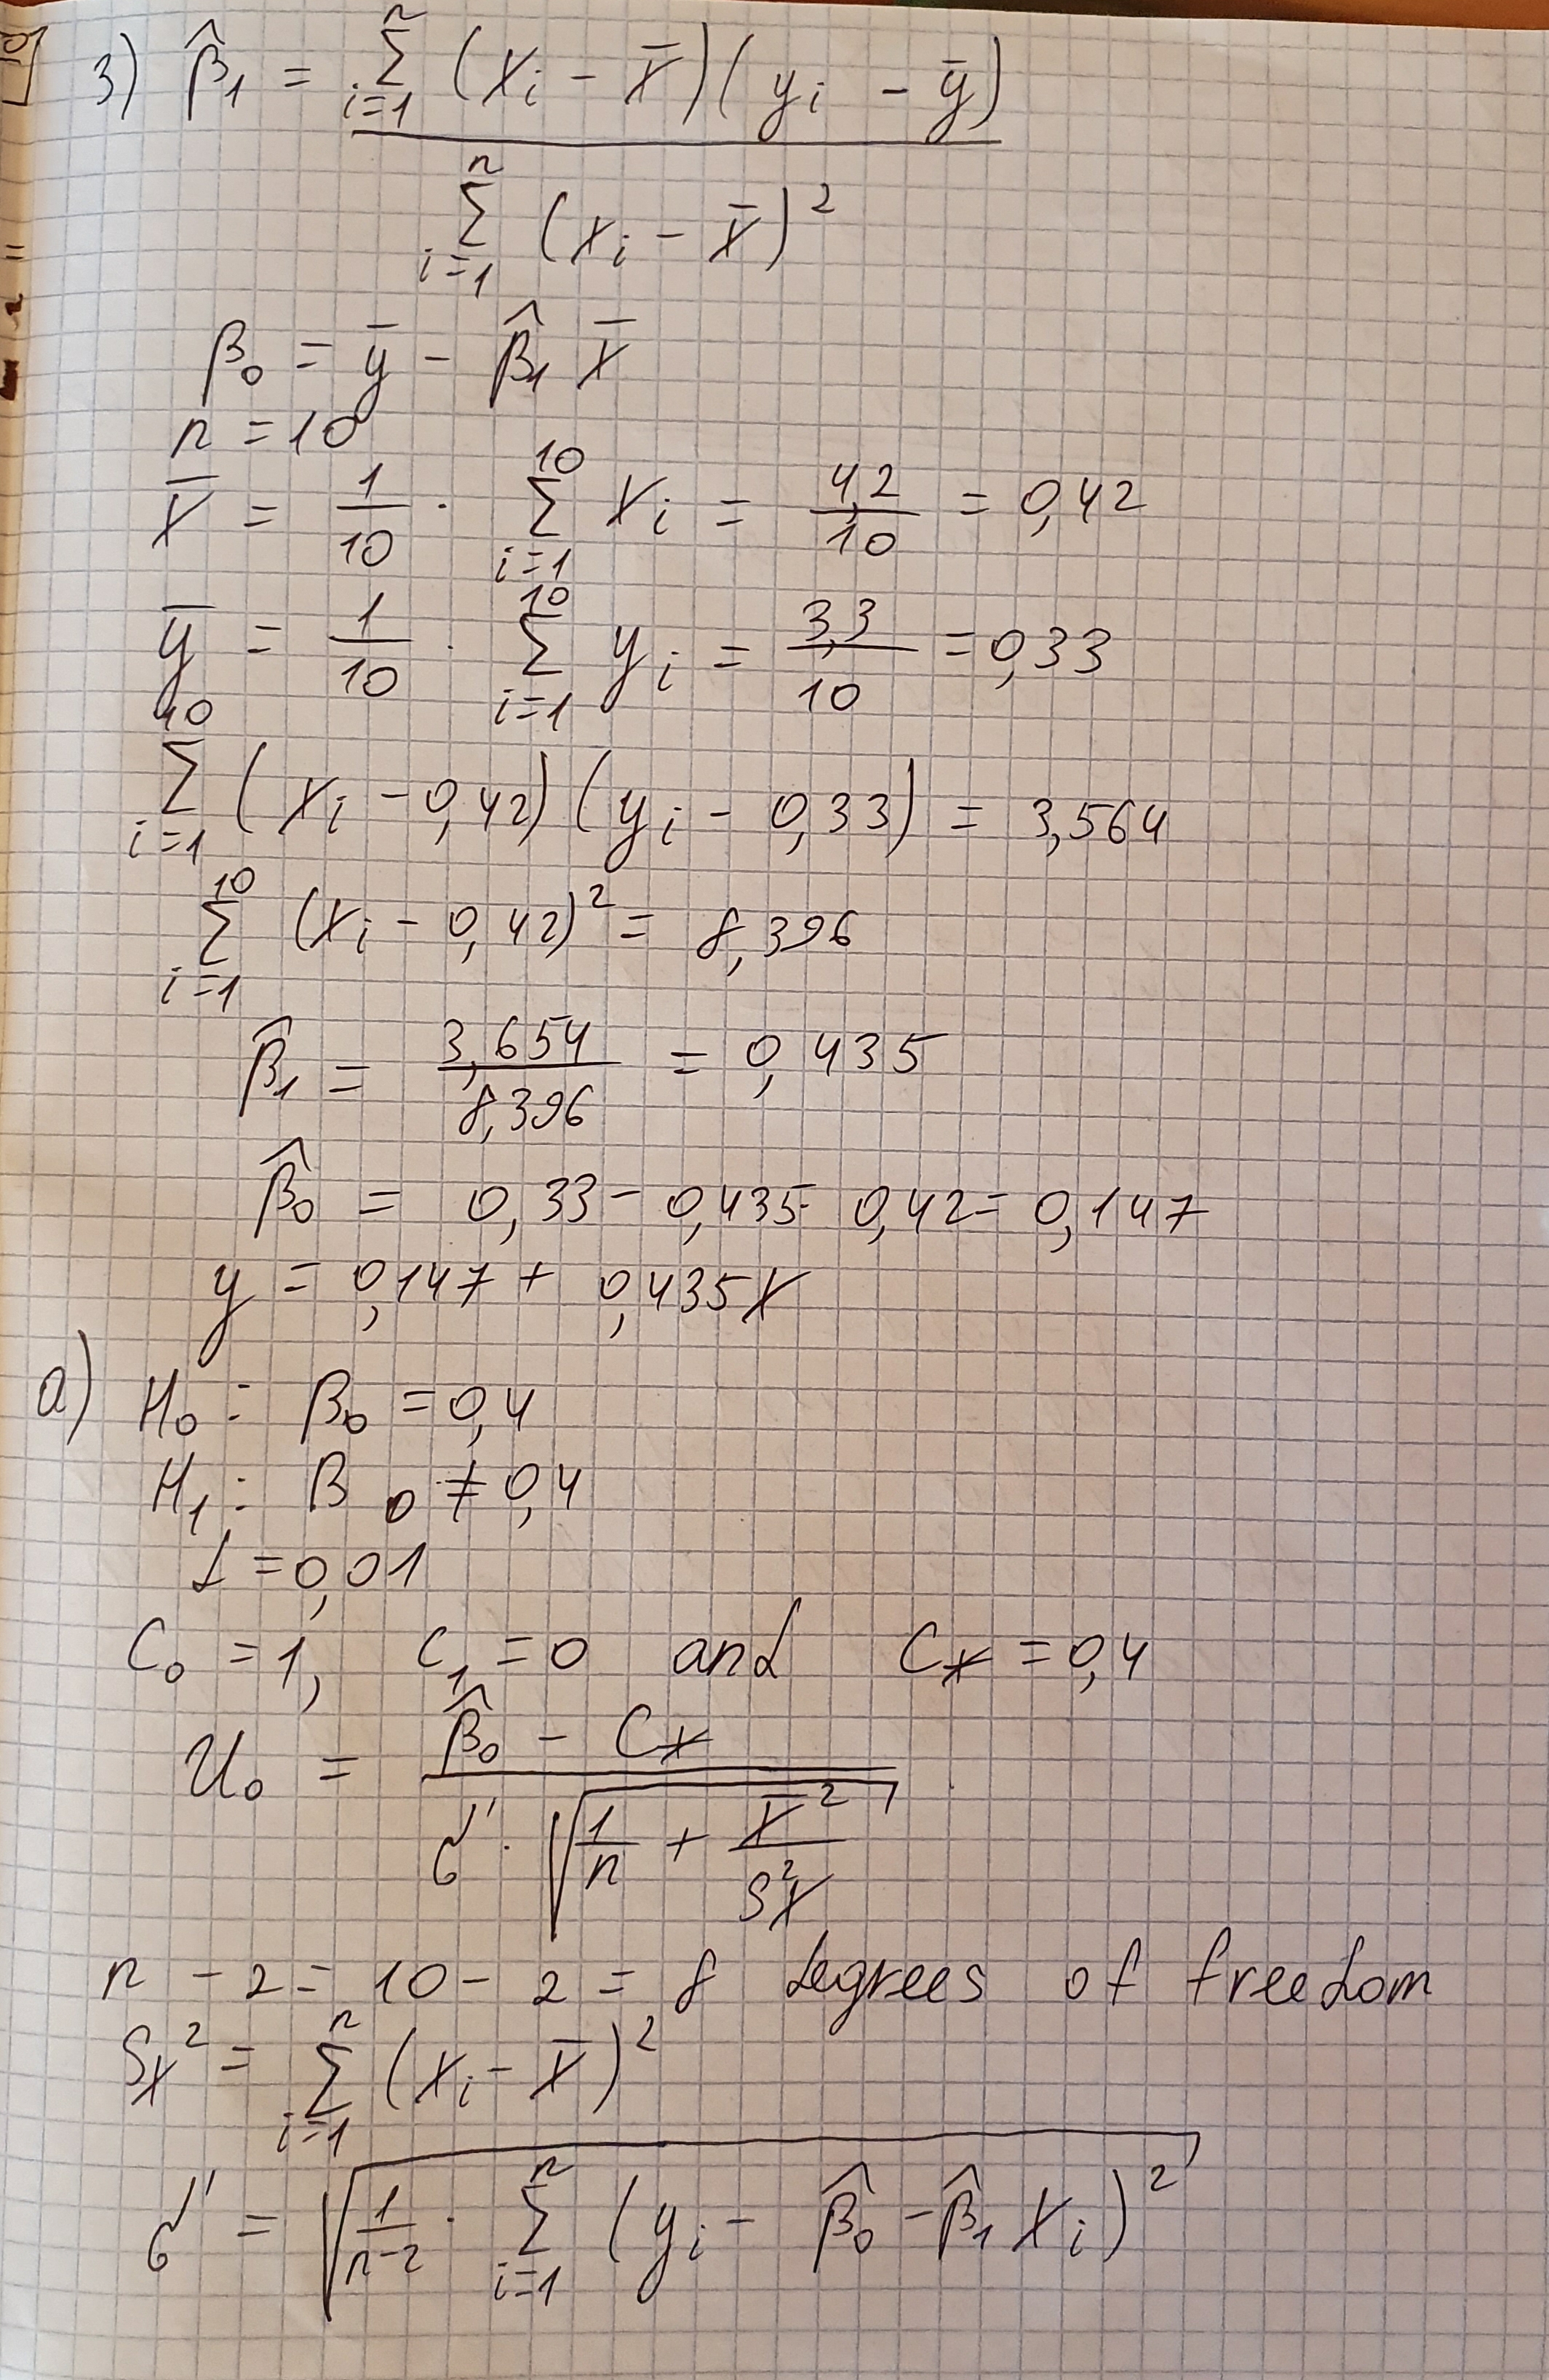 3) β̂₁ = Σⁿᵢ₌₁ (xᵢ − x̄)(yᵢ − ȳ)
Σⁿᵢ₌₁ (xᵢ − x̄)²
β₀ = ȳ − β̂₁ x̄
n = 10
x̄ = 1/10 · Σ¹⁰ᵢ₌₁ xᵢ = 4,2/10 = 0,42
ȳ = 1/10 · Σ¹⁰ᵢ₌₁ yᵢ = 3,3/10 = 0,33
Σ¹⁰ᵢ₌₁ (xᵢ − 0,42)(yᵢ − 0,33) = 3,564
Σ¹⁰ᵢ₌₁ (xᵢ − 0,42)² = 8,396
β̂₁ = 3,654/8,396 = 0,435
β̂₀ = 0,33 − 0,435 · 0,42 = 0,147
y = 0,147 + 0,435x
a) H₀ : β₀ = 0,4
H₁ : β₀ ≠ 0,4
α = 0,01
C₀ = 1, C₁ = 0 and C* = 0,4
U₀ = (β̂₀ − C*) / (σ' · √(1/n + x̄²/Sx²))
n − 2 = 10 − 2 = 8 degrees of freedom
Sx² = Σⁿᵢ₌₁ (xᵢ − x̄)²
σ' = √(1/(n−2) · Σⁿᵢ₌₁ (yᵢ − β̂₀ − β̂₁ xᵢ)²)